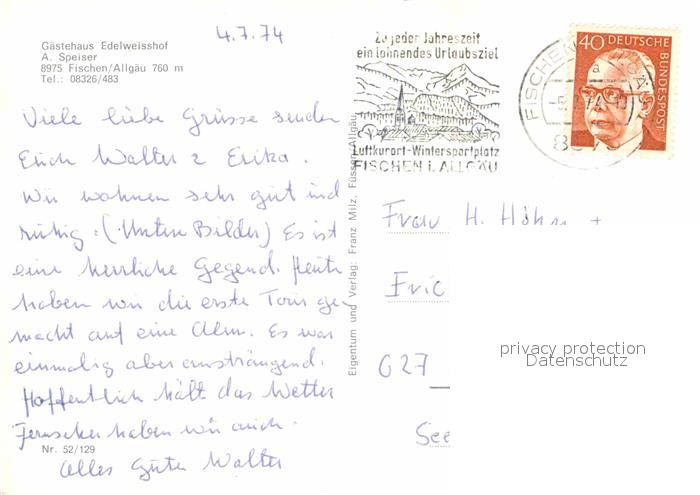 Gästehaus Edelweisshof
A. Speiser
8975 Fischen/Allgäu 760 m
Tel.: 08326/483
4.7.74
Viele liebe Grüsse senden
Euch Walter & Erika.
Wir wohnen sehr gut und
ruhig. (Untere Bilder) Es ist
eine herrliche Gegend. Heute
haben wir die erste Tour ge-
macht auf eine Alm. Es war
einmalig aber ansträngend.
Hoffentlich hält das Wetter
Fernseher haben wir auch.
Nr. 52/129
Alles Gute Walter
Eigentum und Verlag: Franz Milz, Füssen/Allgäu
Zu jeder Jahreszeit
ein lohnendes Urlaubsziel
Luftkurort-Wintersportplatz
FISCHEN i. ALLGÄU
FISCHEN
a
8975
40 DEUTSCHE BUNDESPOST
Frau H. Höhn +
Eric
627
See
privacy protection
Datenschutz